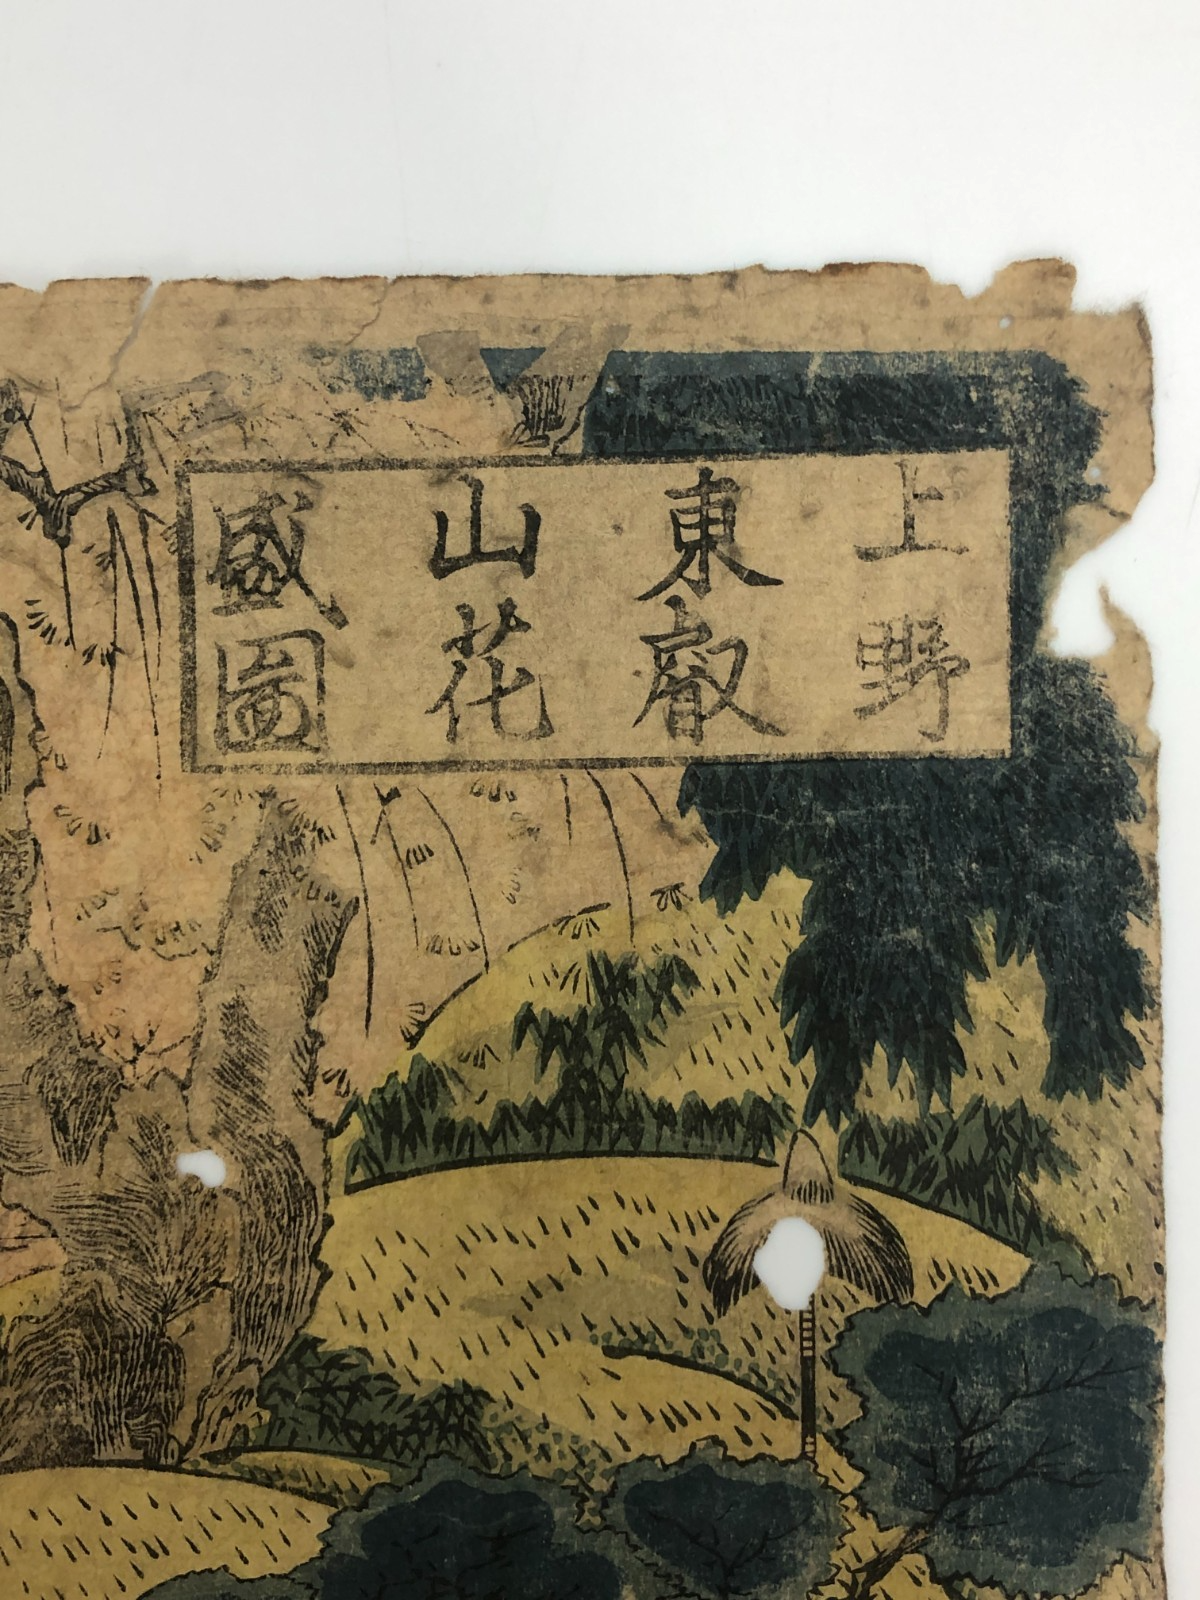 上野
東叡
山花
盛圖